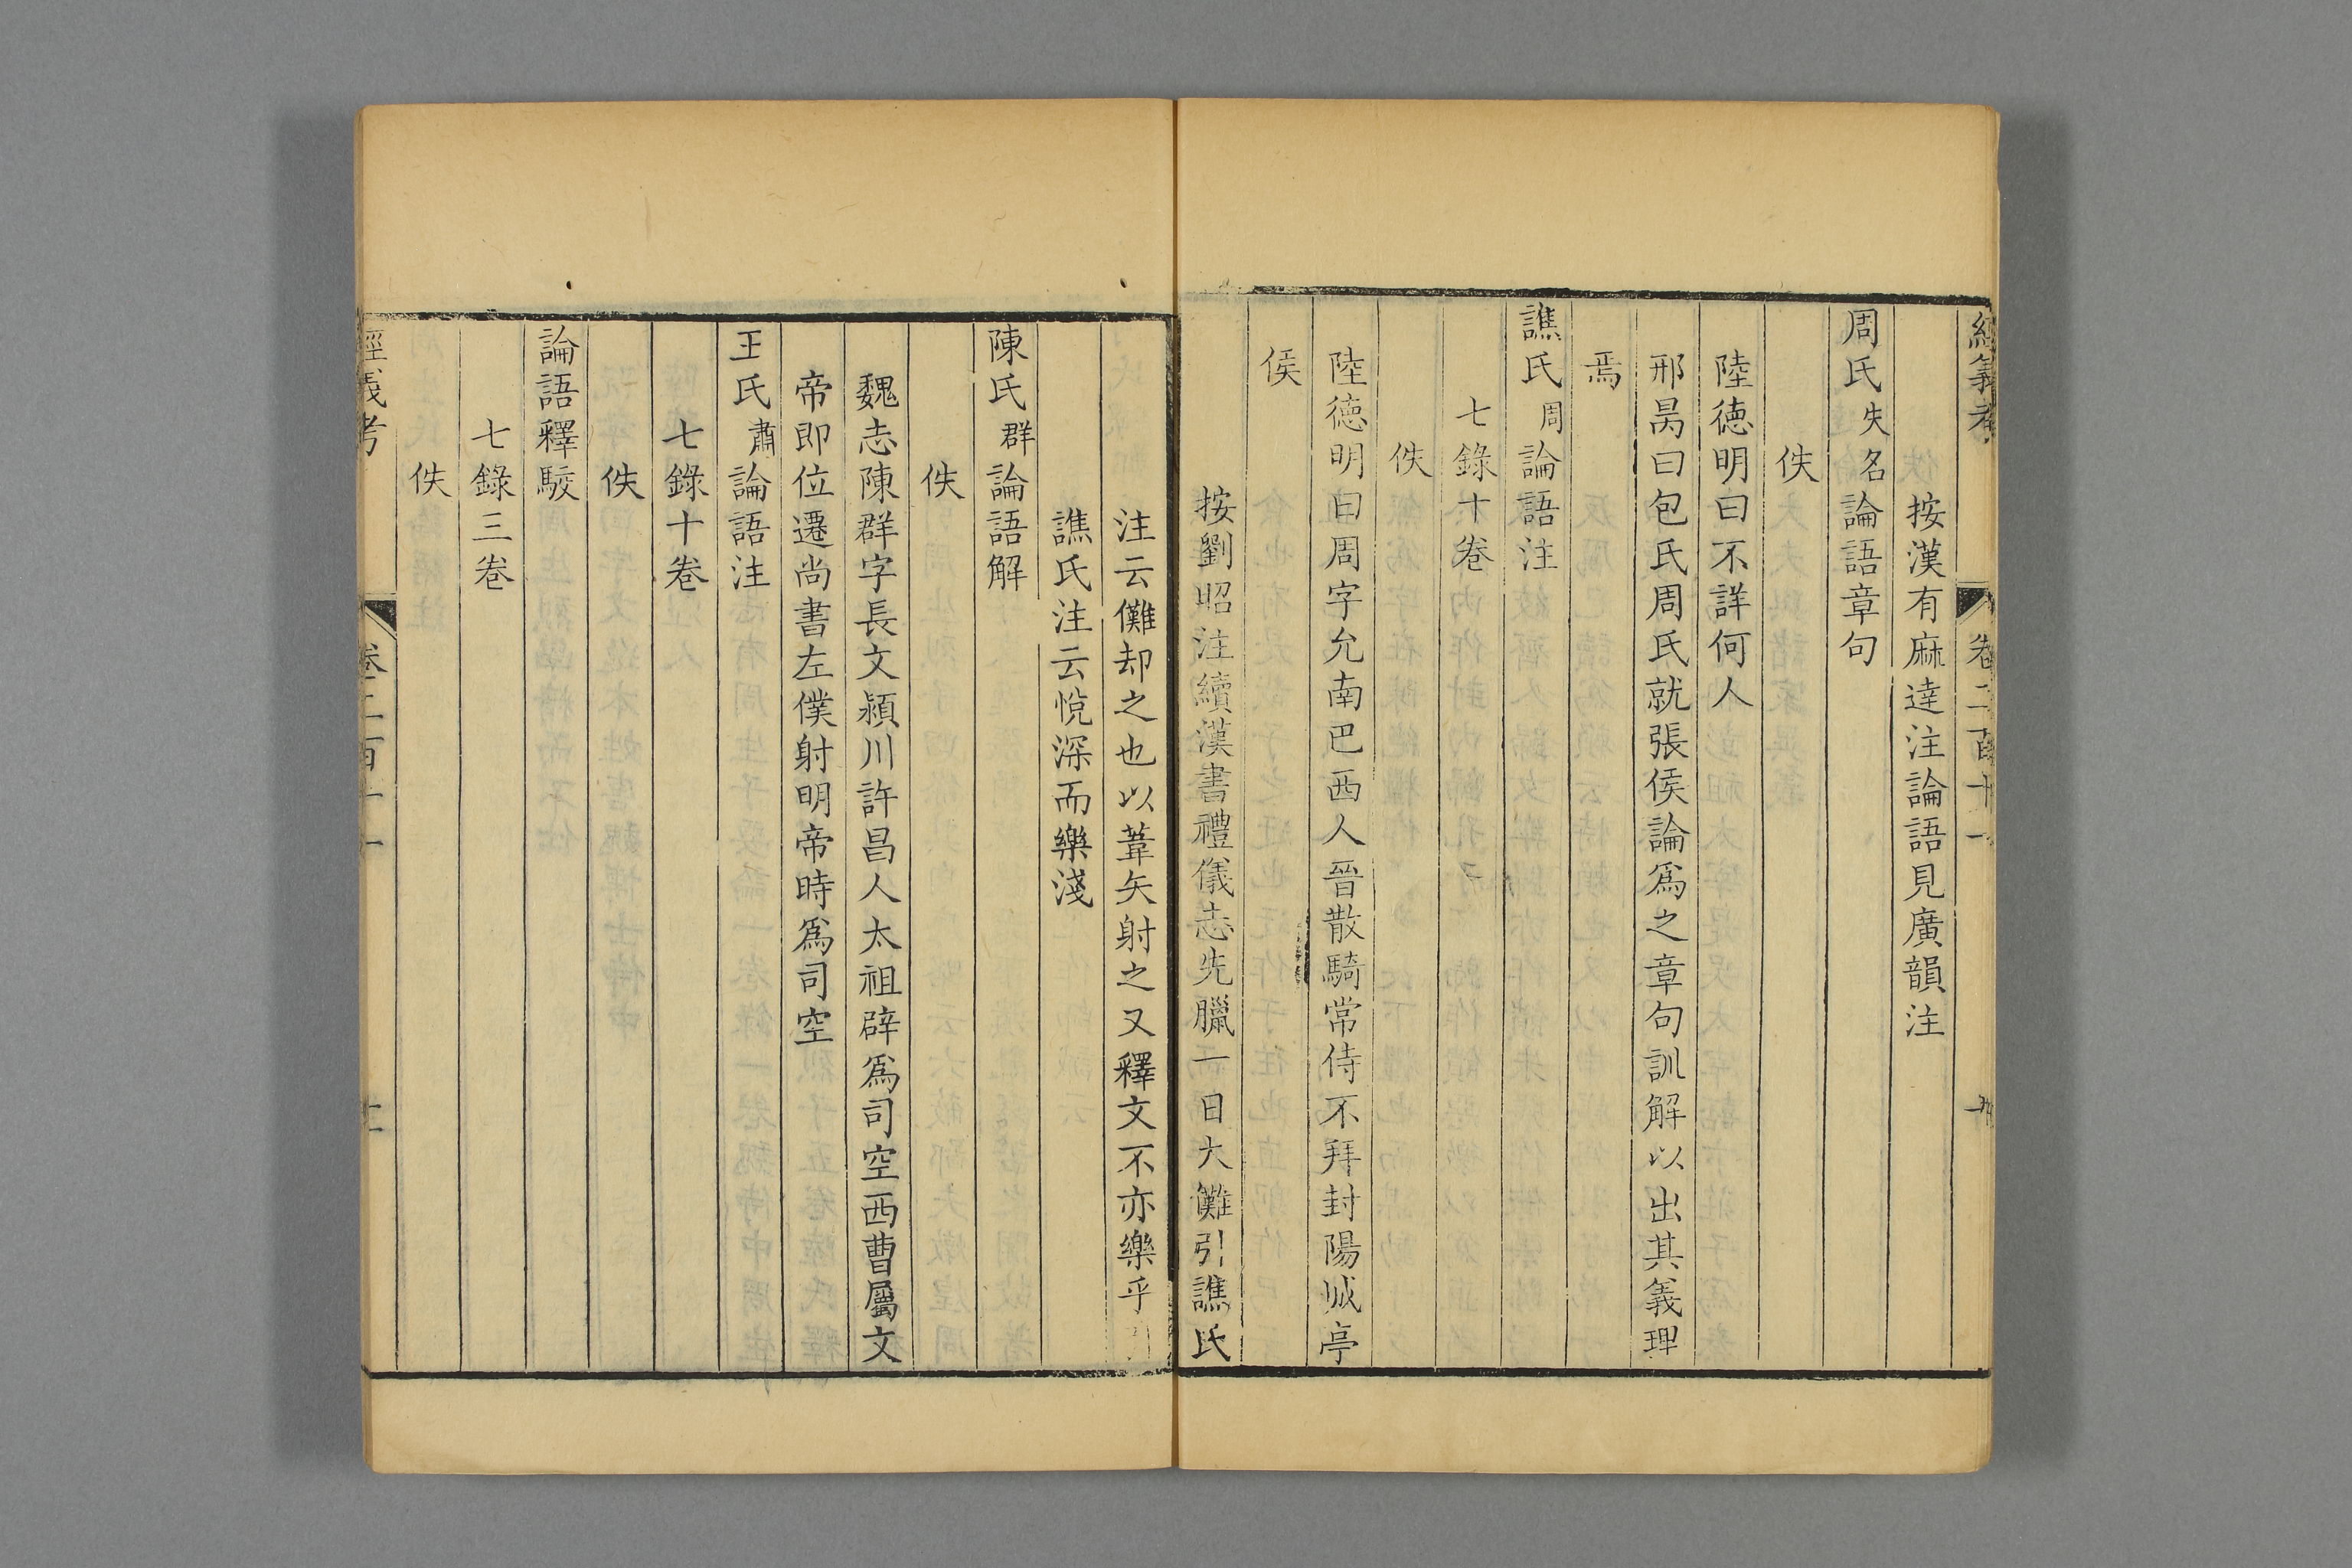 經義考 卷二百十一
按漢有麻達注論語見廣韻注
周氏失名論語章句
佚
陸德明曰不詳何人
邢昺曰包氏周氏就張侯論爲之章句訓解以出其義理
焉
譙氏周論語注
七錄十卷
佚
陸德明曰周字允南巴西人晉散騎常侍不拜封陽城亭
侯
按劉昭注續漢書禮儀志先臘一日大儺引譙氏
注云儺却之也以葦矢射之又釋文不亦樂乎
譙氏注云悅深而樂淺
陳氏群論語解
佚
魏志陳群字長文潁川許昌人太祖辟爲司空西曹屬文
帝即位遷尚書左僕射明帝時爲司空
王氏肅論語注
七錄十卷
佚
論語釋駁
七錄三卷
佚
經義考 卷二百十一